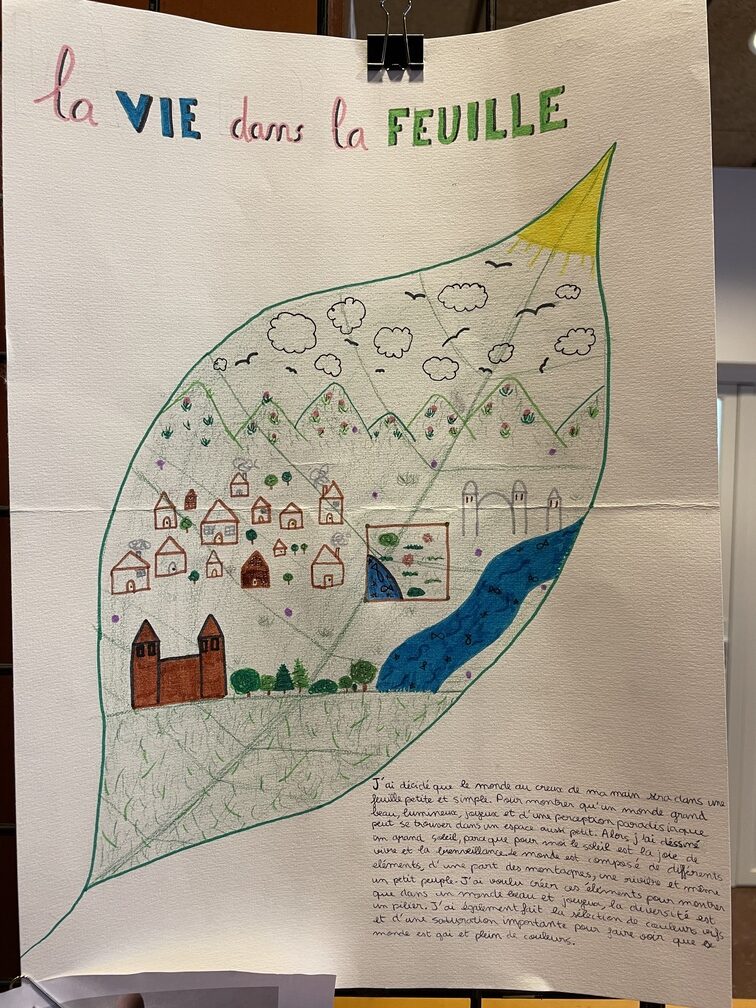 la VIE dans la FEUILLE
J'ai décidé que le monde au creux de ma main sera dans une
feuille petite et simple. Pour montrer qu'un monde grand
beau, lumineux, joyeux et d'une perception paradisiaque
peut se trouver dans un espace aussi petit. Alors j'ai déssiné
un grand soleil, parce que pour moi le soleil est la joie de
vivre et la bienveillance. le monde est composé de différents
éléments, d'une part des montagnes, une rivière et même
un petit peuple. J'ai voulu créer ces éléments pour montrer
que dans un monde beau et joyeux, la diversité est
un pilier. J'ai également fait la sélection de couleurs vifs
et d'une saturation importante pour faire voir que le
monde est gai et plein de couleurs.